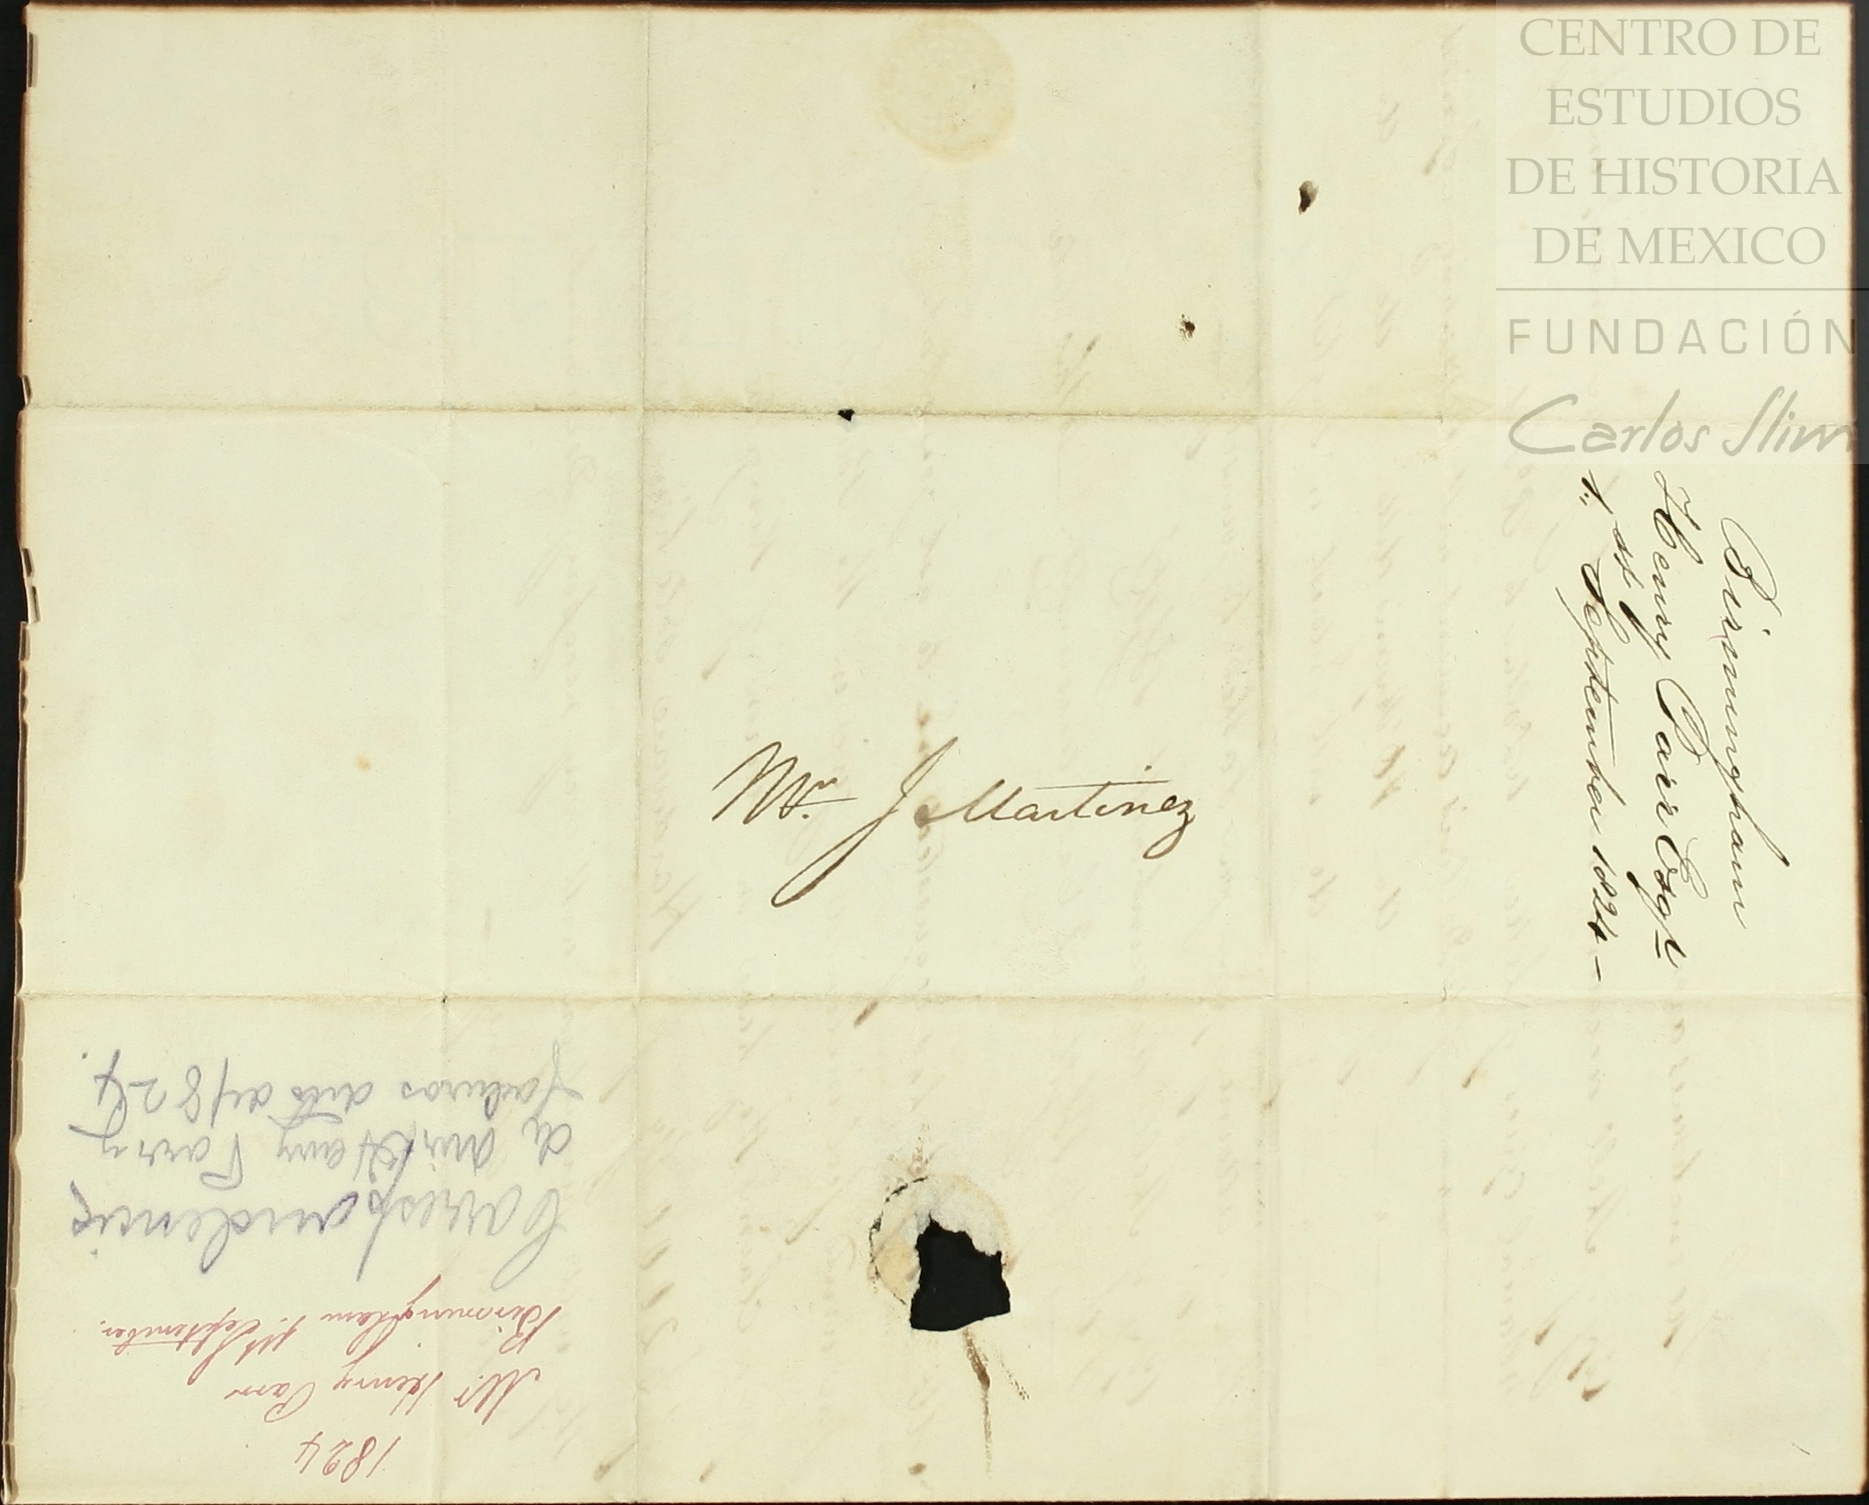 CENTRO DE
ESTUDIOS
DE HISTORIA
DE MEXICO
FUNDACIÓN
Carlos Slim
Birmingham
Henry Parr Esqr
1st September 1824 –
Mr. J Martinez
1824
Mr Henry Parr
Birmingham 1st September.
Correspondencia
de Mir Henry Parry
facturas de 1824.